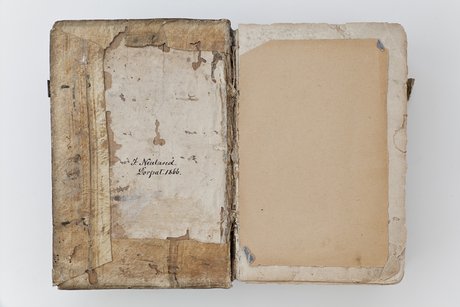 J. Neuland
Dorpat. 1866.